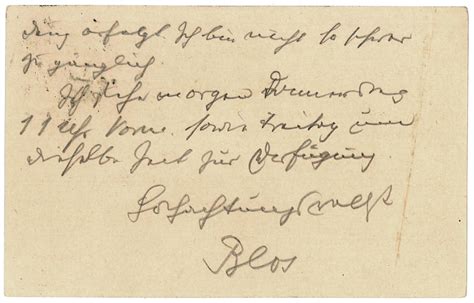 dung erfolgt. Ich bin nicht so schwer
zugänglich.
Ich stehe morgen Donnerstag
11 Uhr Vorm. sowie Freitag um
dieselbe Zeit zur Verfügung
Hochachtungsvollst
Blos